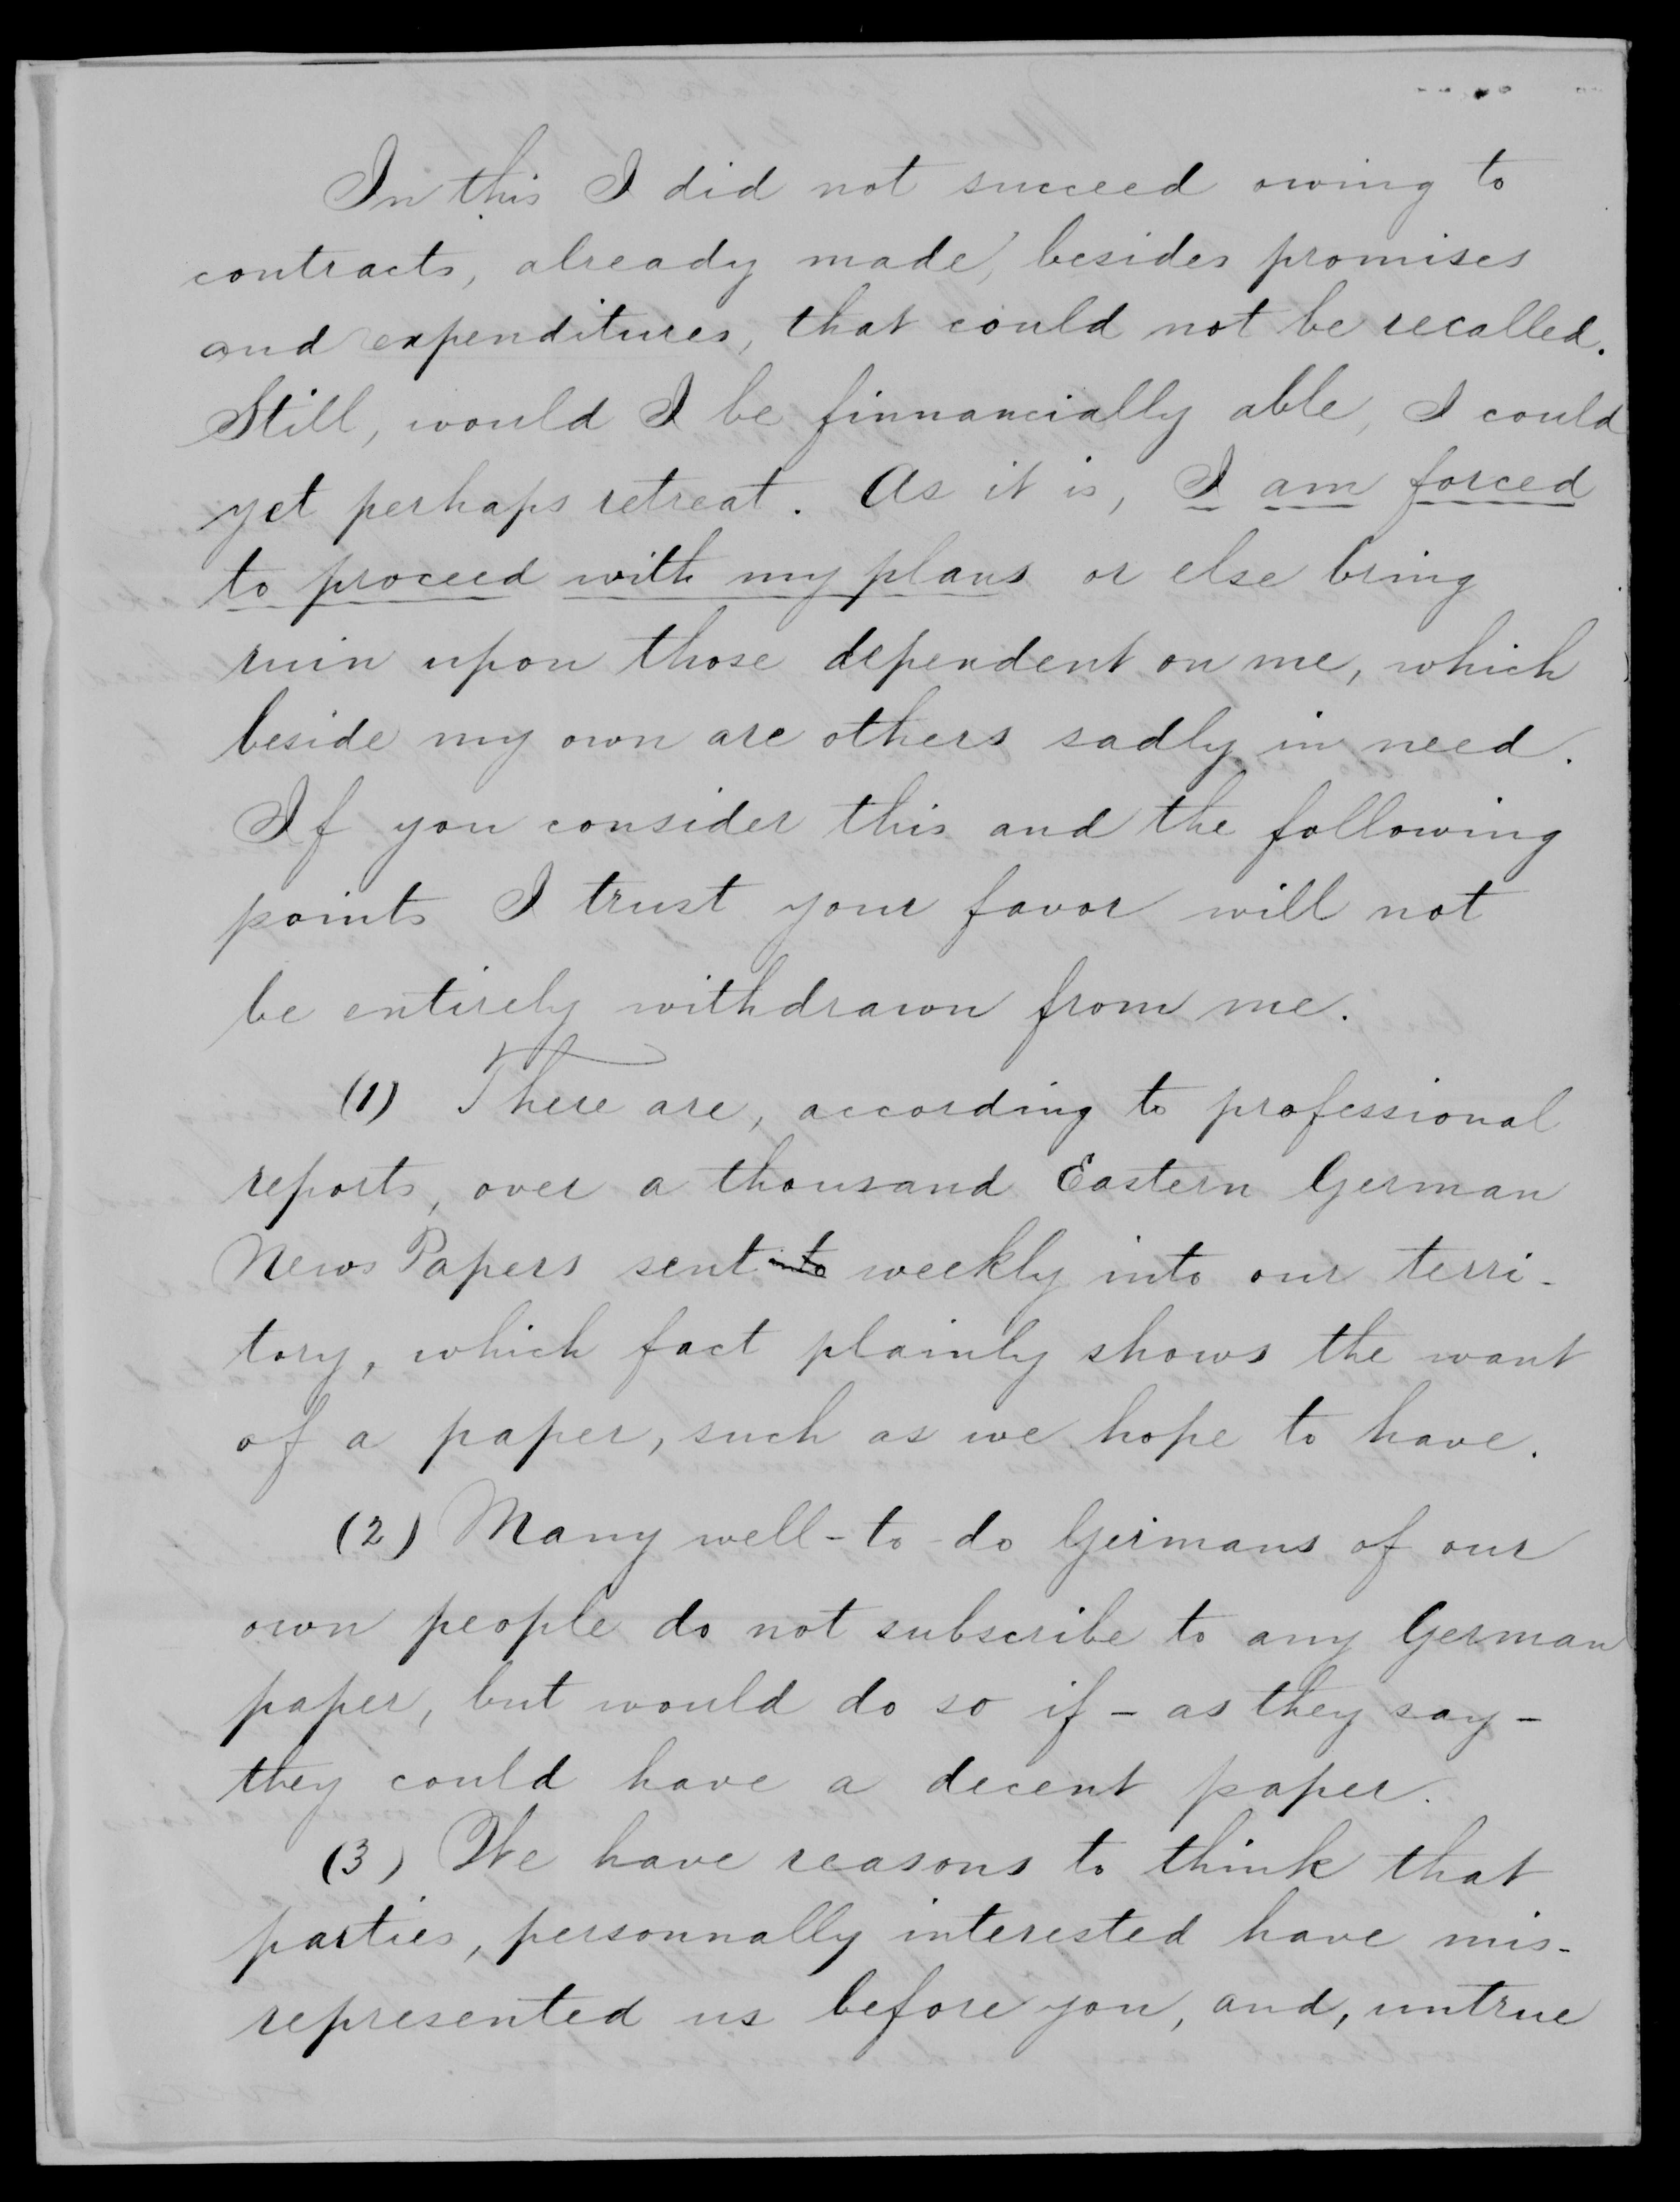 In this I did not succeed owing to
contracts, already made, besides promises
and expenditures, that could not be recalled.
Still, would I be finnancially able, I could
yet perhaps retreat. As it is, I am forced
to proceed with my plans or else bring
ruin upon those dependent on me, which
beside my own are others sadly in need.
If you consider this and the following
points I trust your favor will not
be entirely withdrawn from me.
(1) There are, according to professional
reports, over a thousand Eastern German
News Papers sent into weekly into our terri-
tory, which fact plainly shows the want
of a paper, such as we hope to have.
(2) Many well-to-do Germans of our
own people do not subscribe to any German
paper, but would do so if - as they say -
they could have a decent paper.
(3) We have reasons to think that
parties, personnally interested have mis-
represented us before you, and, untrue